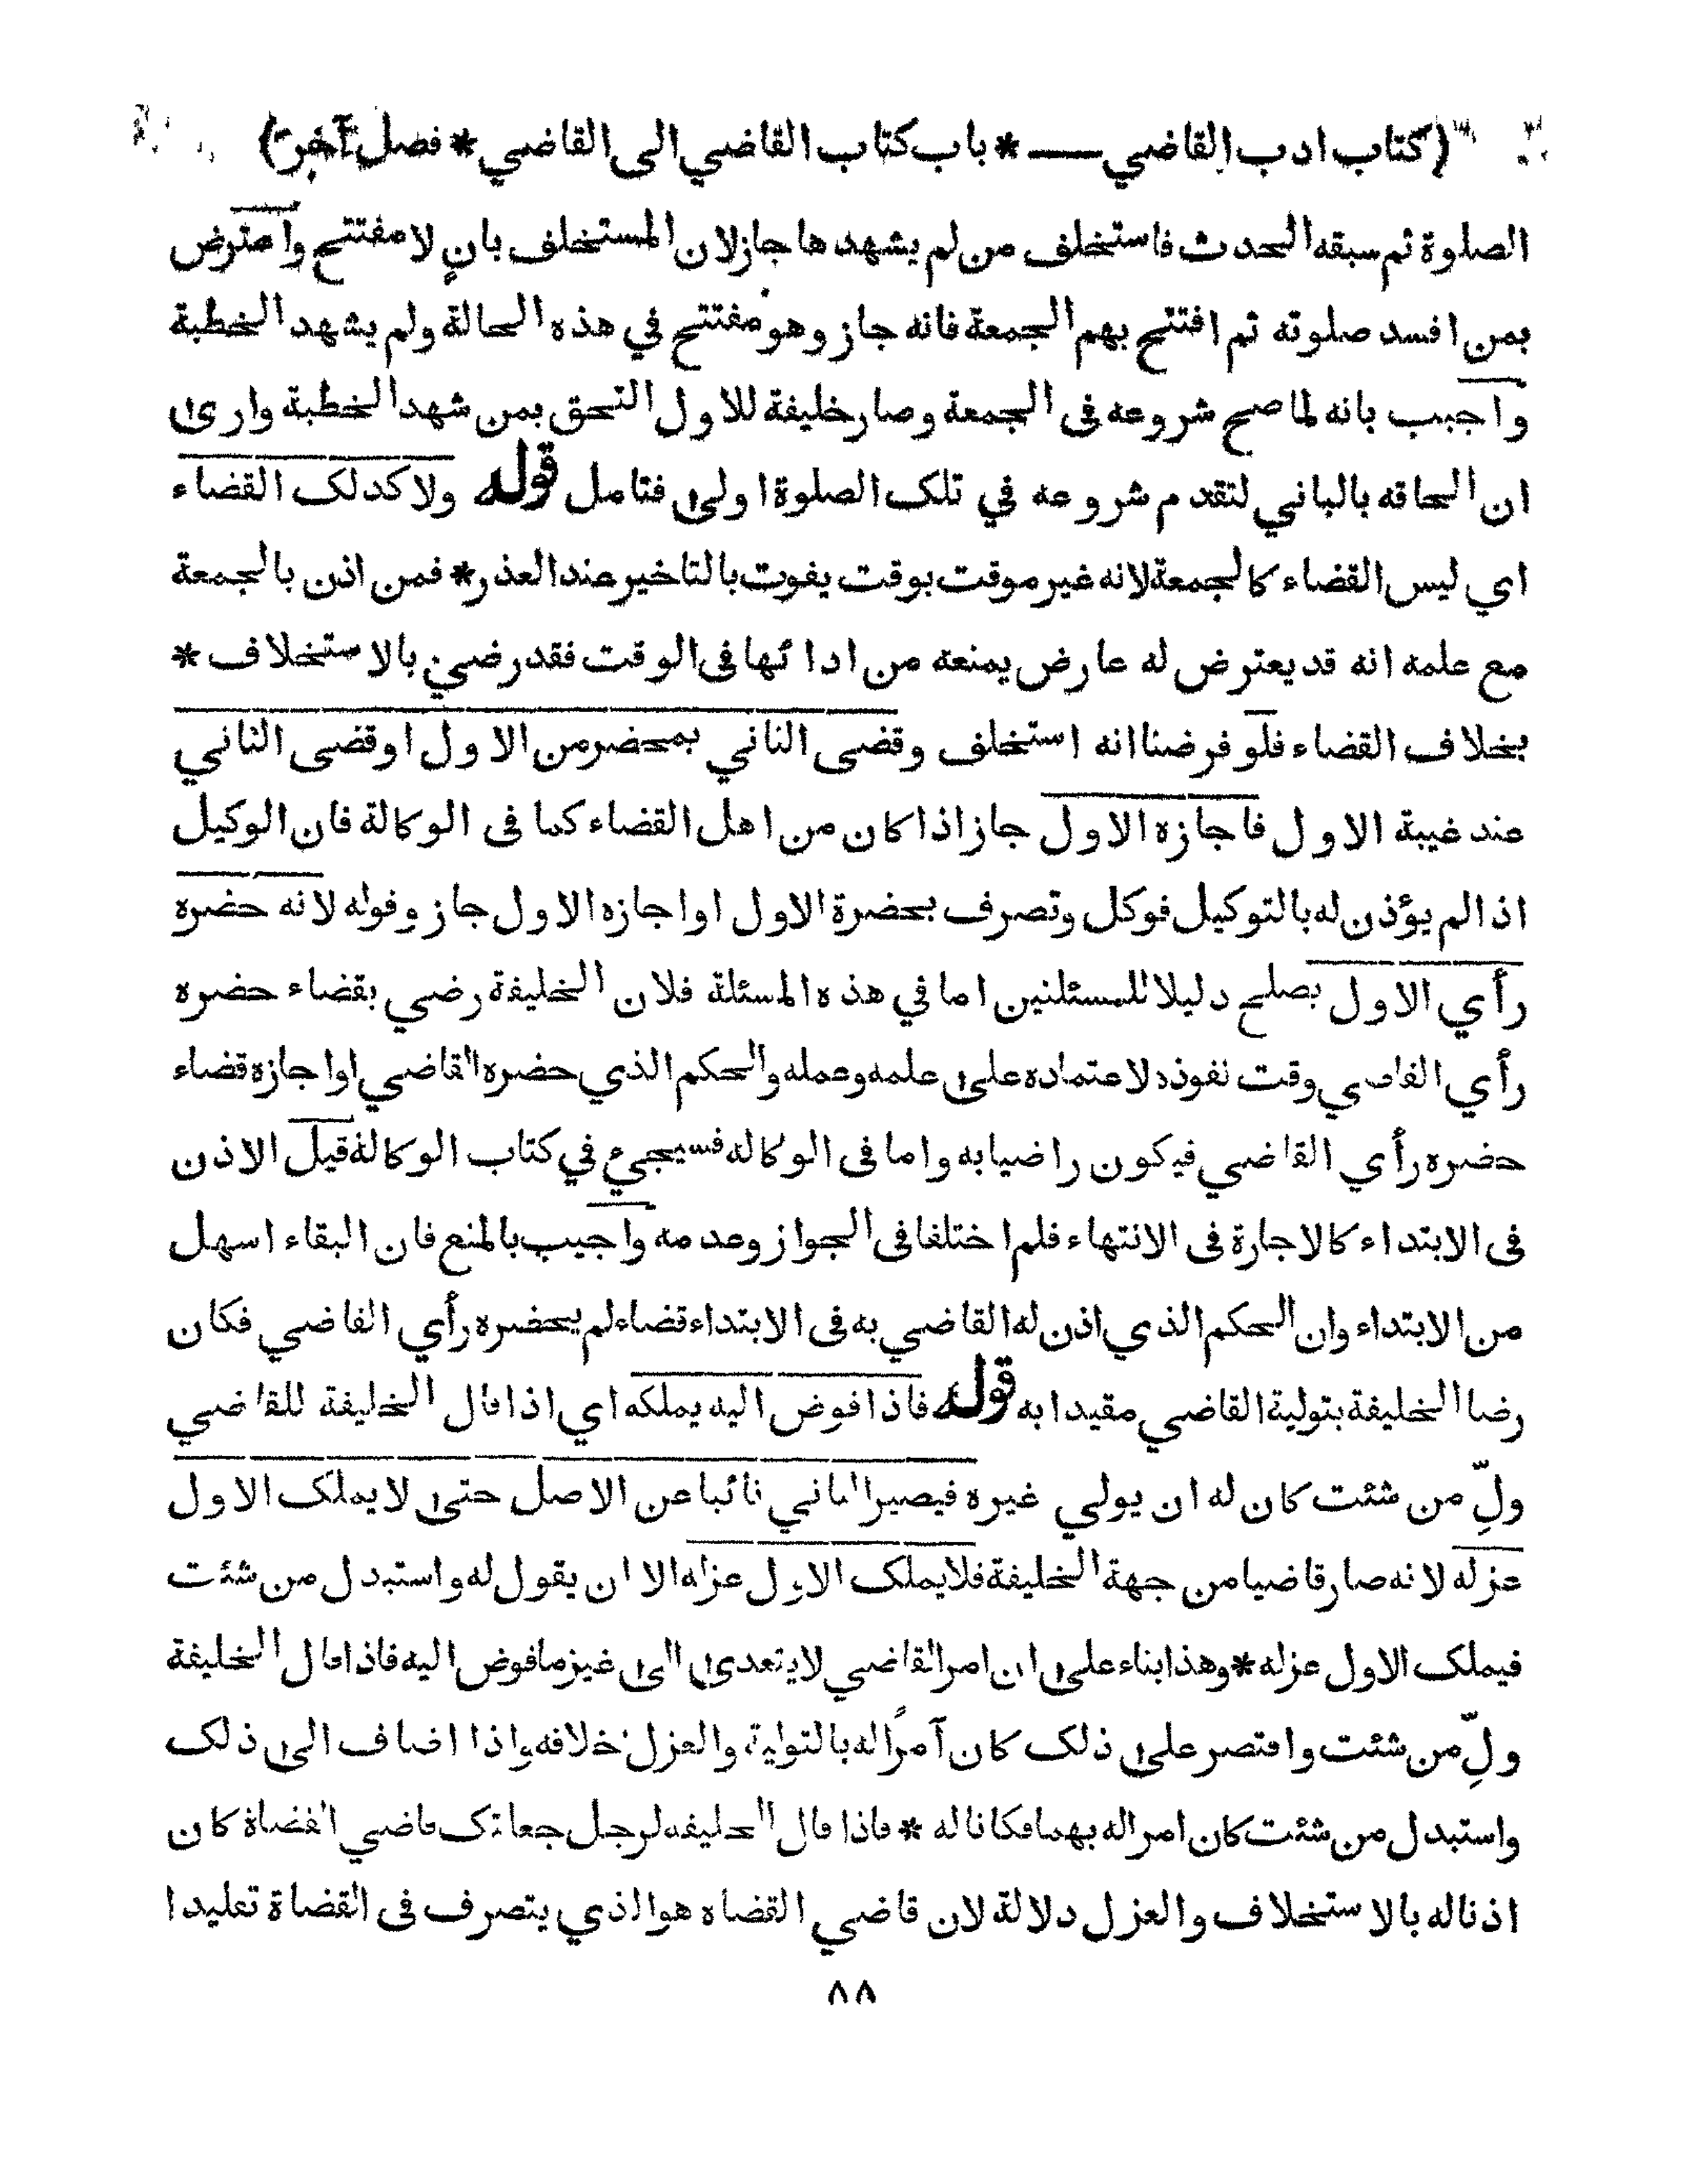 (كتاب ادب القاضي — * باب كتاب القاضي الى القاضي * فصل آخر)
الصلوة ثم سبقه الحدث فاستخلف من لم يشهدها جاز لان المستخلف بانٍ لا مفتتح واعترض
بمن افسد صلوته ثم افتتح بهم الجمعة فانه جاز وهو مفتتح في هذه الحالة ولم يشهد الخطبة
واجيب بانه لما صح شروعه فى الجمعة وصار خليفة للاول التحق بمن شهد الخطبة وارى
ان الحاقه بالباني لتقدم شروعه في تلك الصلوة اولى فتامل قوله ولا كذلك القضاء
اي ليس القضاء كالجمعة لانه غير موقت بوقت يفوت بالتاخير عند العذر * فمن اذن بالجمعة
مع علمه انه قد يعترض له عارض يمنعه من ادائها فى الوقت فقد رضي بالاستخلاف *
بخلاف القضاء فلو فرضنا انه استخلف وقضى الثاني بمحضر من الاول او قضى الثاني
عند غيبة الاول فاجازه الاول جاز اذا كان من اهل القضاء كما فى الوكالة فان الوكيل
اذا لم يؤذن له بالتوكيل فوكل وتصرف بحضرة الاول او اجازه الاول جاز وقوله لانه حضره
رأي الاول يصلح دليلا للمسئلتين اما في هذه المسئلة فلان الخليفة رضي بقضاء حضره
رأي القاضي وقت نفوذه لاعتماده على علمه وعمله والحكم الذي حضره القاضي او اجازه قضاء
حضره رأي القاضي فيكون راضيا به واما فى الوكالة فسيجيء في كتاب الوكالة قيل الاذن
فى الابتداء كالاجارة فى الانتهاء فلم اختلفا فى الجواز وعدمه واجيب بالمنع فان البقاء اسهل
من الابتداء وان الحكم الذي اذن له القاضي به فى الابتداء قضاء لم يحضره رأي القاضي فكان
رضا الخليفة بتولية القاضي مقيدا به قوله فاذا فوض اليه يملكه اي اذا قال الخليفة للقاضي
ولِّ من شئت كان له ان يولي غيره فيصير الثاني نائبا عن الاصل حتى لا يملك الاول
عزله لانه صار قاضيا من جهة الخليفة فلا يملك الاول عزله الا ان يقول له واستبدل من شئت
فيملك الاول عزله * وهذا بناء على ان امر القاضي لا يتعدى الى غير ما فوض اليه فاذا قال الخليفة
ولِّ من شئت واقتصر على ذلك كان آمرًا له بالتولية والعزل خلافه واذا اضاف الى ذلك
واستبدل من شئت كان امرا له بهما فكانا له * فاذا قال الخليفة لرجل جعلتك قاضي القضاة كان
اذنا له بالاستخلاف والعزل دلالة لان قاضي القضاة هو الذي يتصرف فى القضاة تقليدا
٨٨